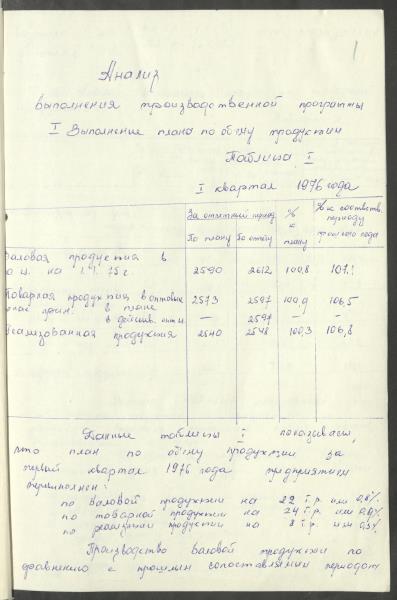 1
Анализ
выполнения производственной программы
I Выполнение плана по объему продукции
Таблица I
I квартал 1976 года
За отчетный период % к плану % к соответств. периоду прошлого года
По плану По отчету
Валовая продукция в
о ц. на 1.1. 75 г 2590 2612 100,8 107,1
Товарная продукция в оптовых 2573 2597 100,9 106,5
цен прин. в плане
в действ. опт ц — 2597 — —
Реализованная продукция 2540 2548 100,3 106,8
Данные таблицы I показывают,
что план по объему продукции за
первый квартал 1976 года предприятием
перевыполнен:
по валовой продукции на 22 т.р. или 0,8%
по товарной продукции на 24 т.р. или 0,9%
по реализации продукции на 8 т.р. или 0,3%
Производство валовой продукции по
сравнению с прошлым сопоставлении периодом